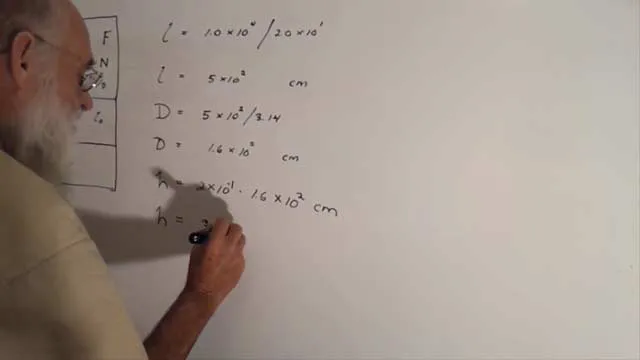 F
l = 1.0 × 10⁴ / 2.0 × 10¹
N
l = 5 × 10² cm
D = 5 × 10² / 3.14
D = 1.6 × 10² cm
h = 2 × 10⁻¹ · 1.6 × 10² cm
h = 3